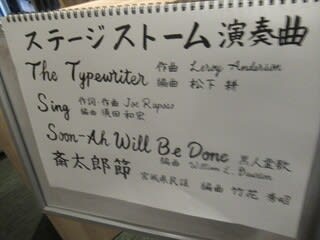 ステージストーム演奏曲
The Typewriter 作曲 Leroy Anderson
編曲 松下 耕
Sing 作詞・作曲 Joe Raposo
編曲 須田 和宏
Soon-Ah Will Be Done 黒人霊歌
編曲 William L. Dawson
斎太郎節 宮城県民謡 編曲 竹花 秀昭